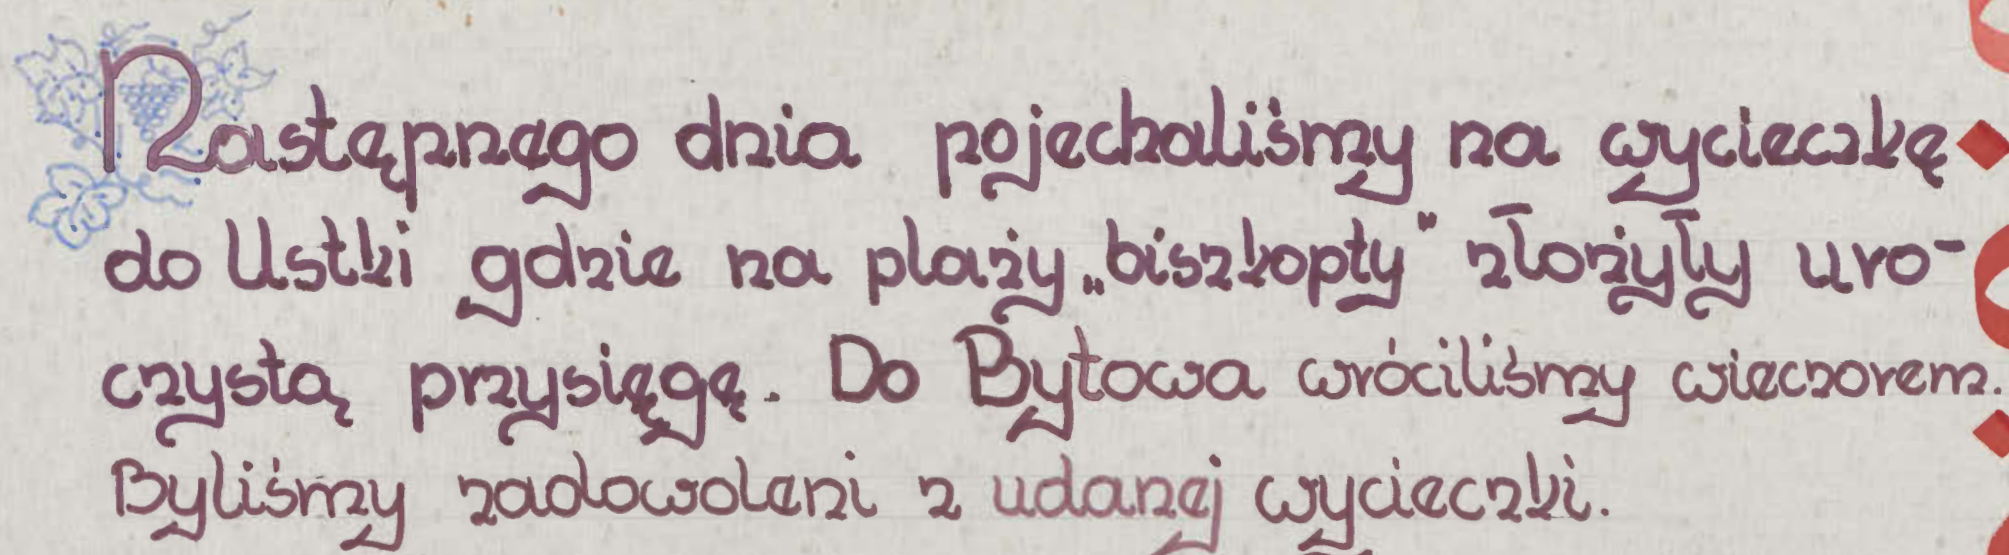 Następnego dnia pojechaliśmy na wycieczkę
do Ustki gdzie na plaży „biszkopty" złożyły uro-
czystą przysięgę. Do Bytowa wróciliśmy wieczorem.
Byliśmy zadowoleni z udanej wycieczki.